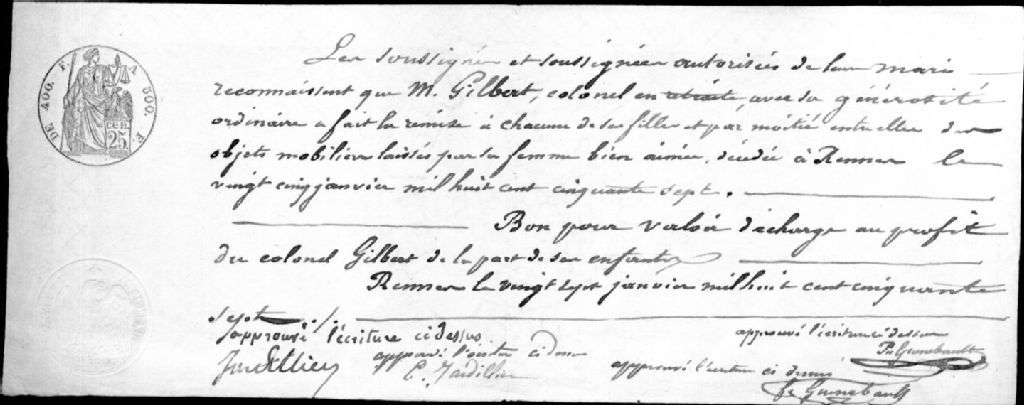 DE 400 F. A 500 F.
25
Les soussignés et soussignées autorisées de leur mari
reconnaissent que M. Gilbert, colonel en retraite, avec sa générosité
ordinaire a fait la remise à chacune de ses filles et par moitié entr'elles des
objets mobiliers laissés par sa femme bien aimée, décédée à Rennes le
vingt cinq janvier mil huit cent cinquante sept.
Bon pour valoir décharge au profit
du colonel Gilbert de la part de ses enfants
Rennes le vingt sept janvier mil huit cent cinquante
sept ./.
japprouvé l'écriture ci dessus.
approuvé l'écriture ci dessus
approuvé l'écriture ci dessus
approuvé l'écriture ci dessus
Guinebault
Guinebault